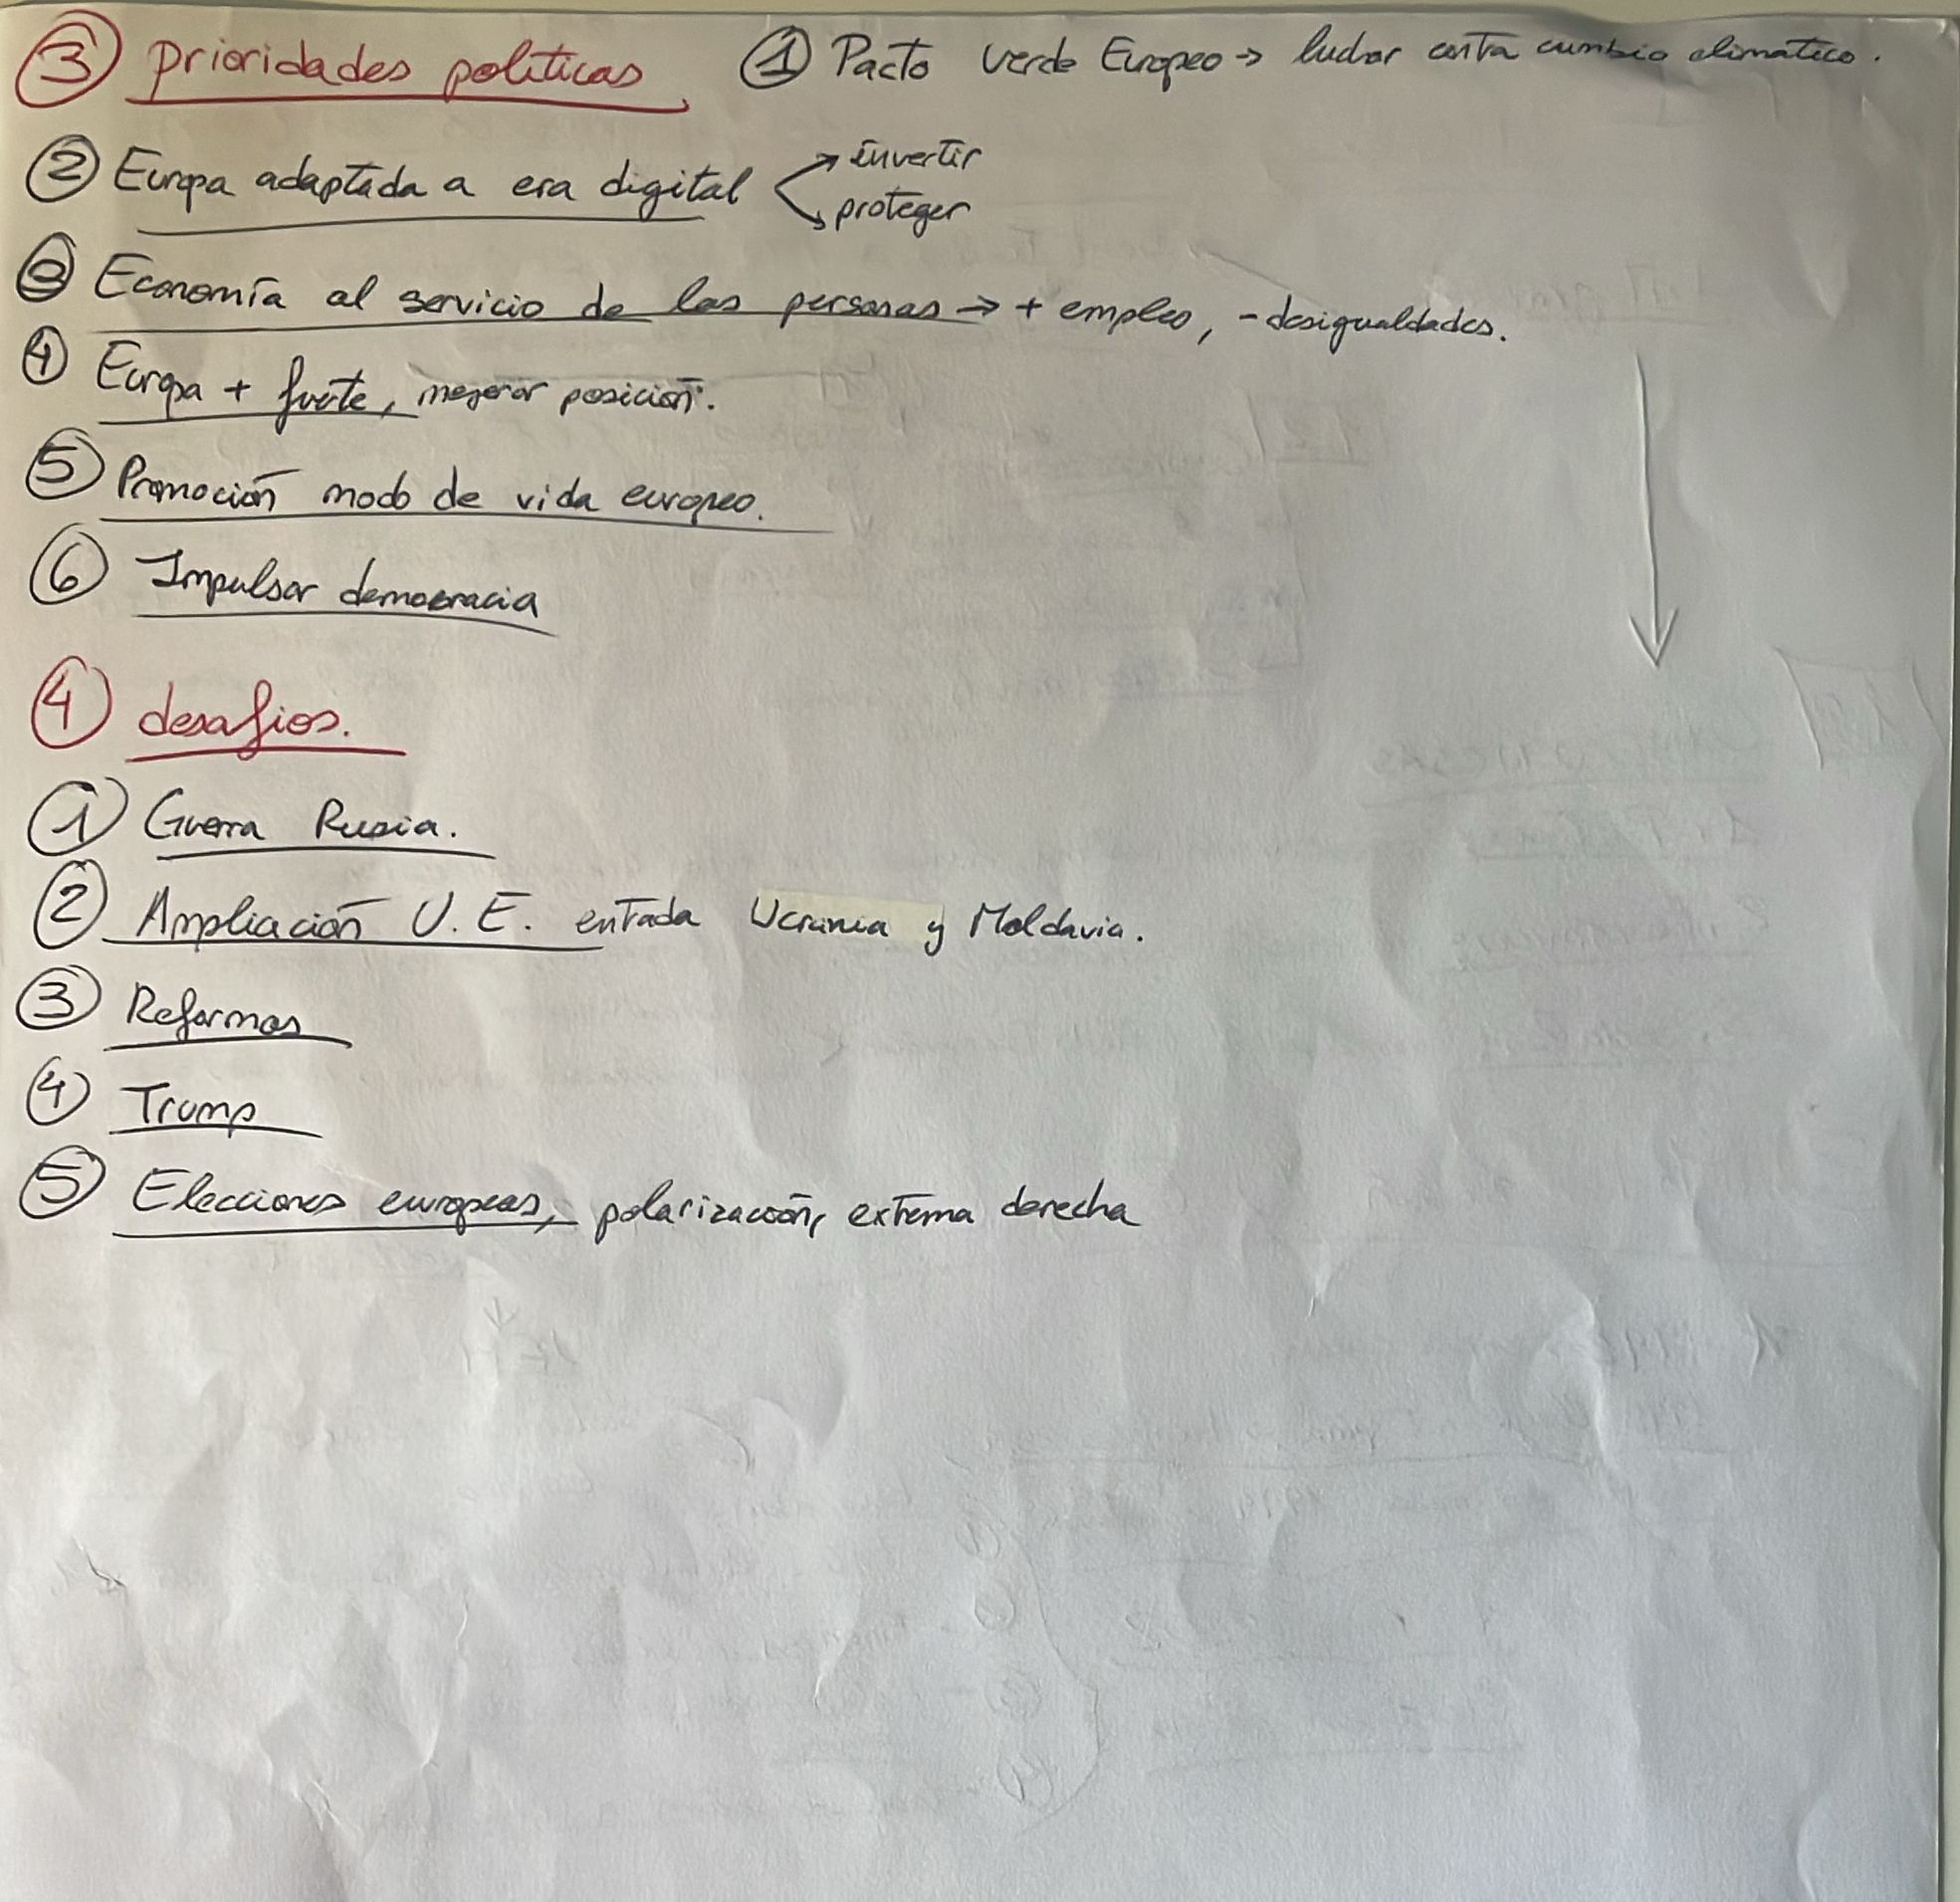 ③ prioridades politicas ① Pacto verde Europeo → luchar contra cambio climatico.
② Europa adaptada a era digital
→ invertir
→ proteger
③ Economía al servicio de las personas → + empleo, - desigualdades.
④ Europa + fuerte, mejorar posición.
⑤ Promoción modo de vida europeo.
⑥ Impulsar democracia
④ desafios.
① Guerra Rusia.
② Ampliación U.E. entrada Ucrania y Moldavia.
③ Reformas
④ Trump
⑤ Elecciones europeas, polarización, extrema derecha